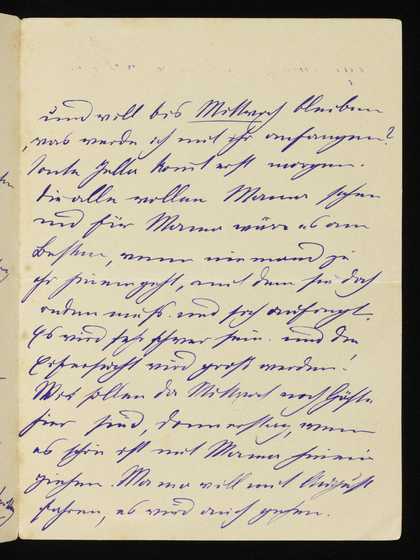 und will bis Mittwoch bleiben
was werde ich mit ihr anfangen?
Tante Jella kommt erst morgen.
Die alle wollen Mama sehen
und für Mama wäre es am
Besten, wenn niemand zu
ihr hineingeht, mit dem sie doch
reden muß. und sich aufregt.
Es wird sehr schwer sein. und die
Eifersucht wird groß werden!
Wir sollen da Mittwoch noch Gäste
hier sind, Donnerstag, wenn
es schön ist mit Mama hinein
ziehen. Mama will mit
fahren, es wird auch gehen.